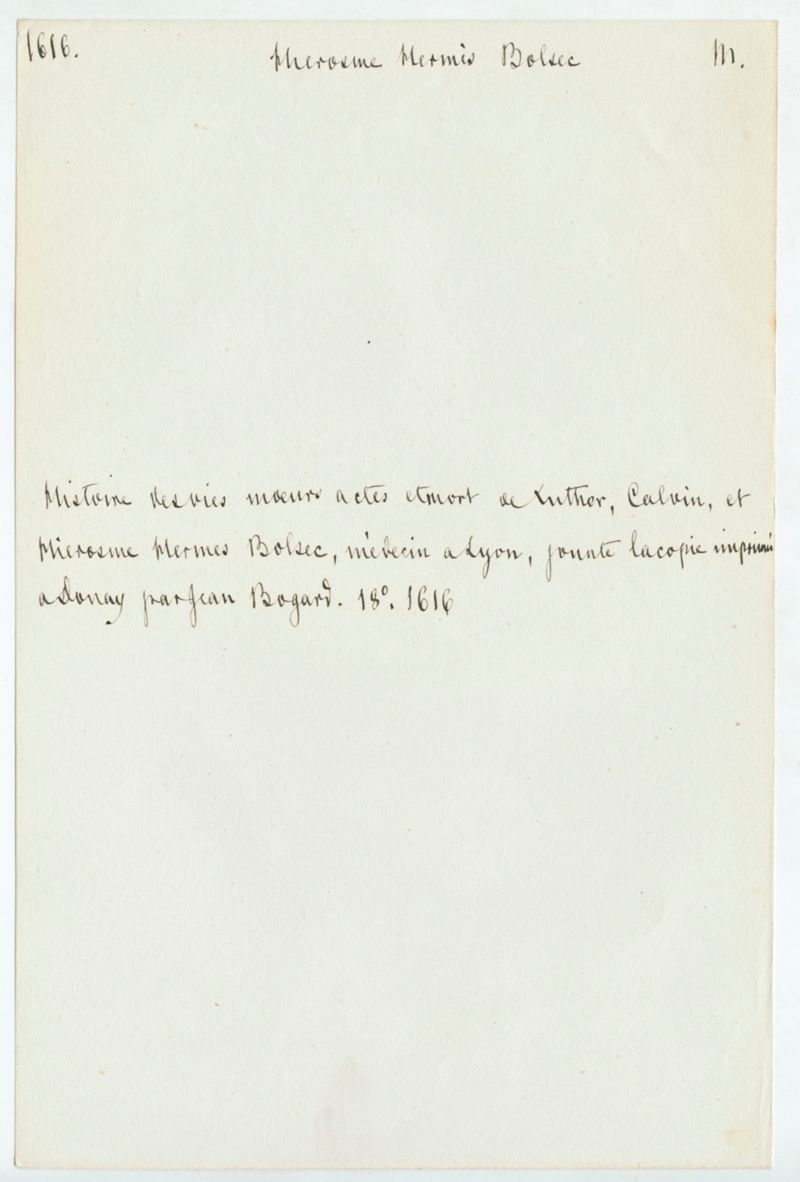 1616. Hierosme Hermès Bolsec M.
Histoire des vies mœurs actes et mort de Luther, Calvin, et
Hierosme Hermes Bolsec, médecin a Lyon, jouxte la copie imprimé
a Douay par Jean Bogard. 18º. 1616